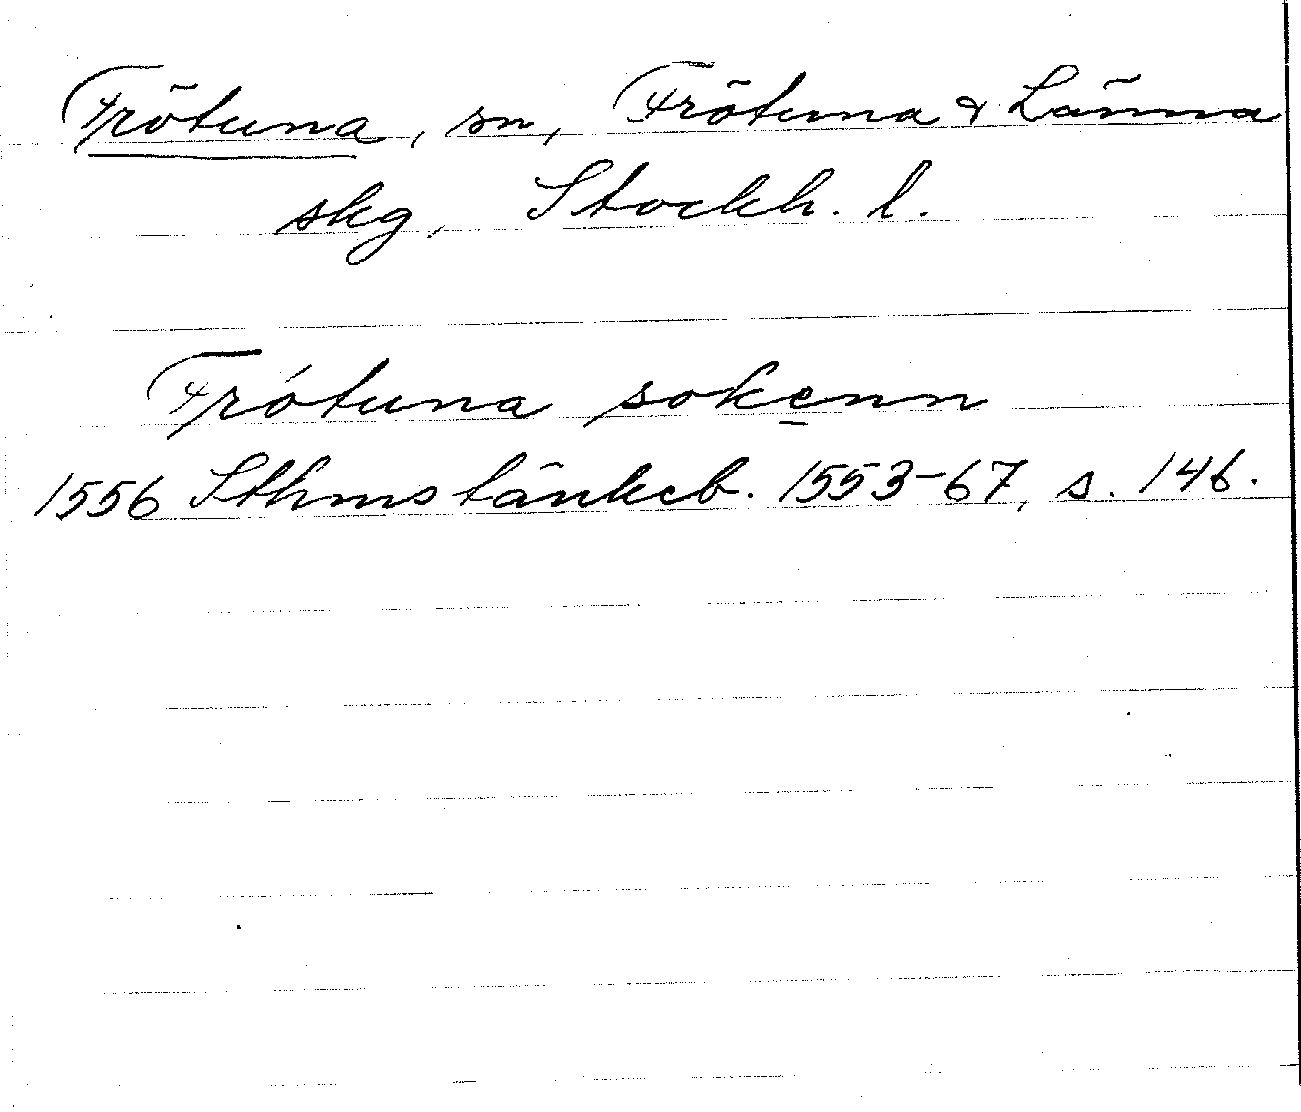 Frötuna, sn, Frötuna & Länna
skg, Stockh. l.
Frótuna sokenn
1556 Sthms tänkeb. 1553-67, s. 146.